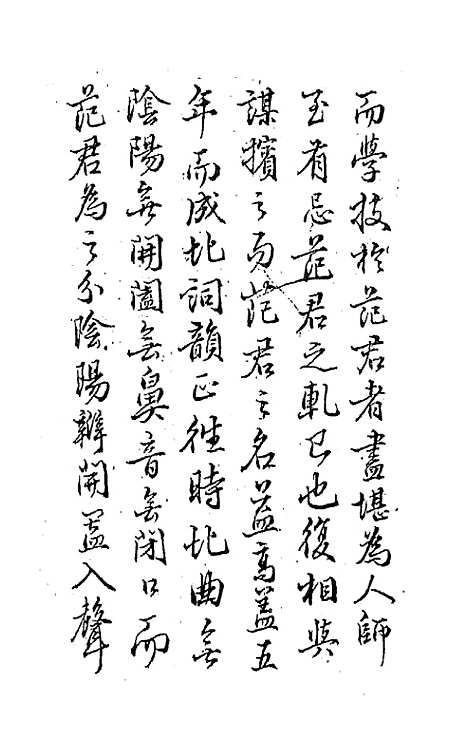 而學技於范君者盡堪為人師
至有忌范君之軋己也復相與
謀擯之而范君之名益高蓋五
年而成北詞韻正從時北曲無
陰陽無開闔無鼻音無閉口而
范君為之分陰陽辨開闔入聲